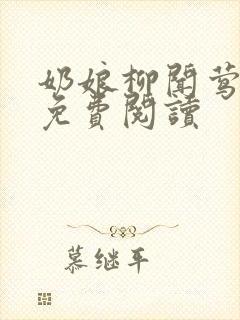 奶娘柳聞莺
免費閱讀
慕继平